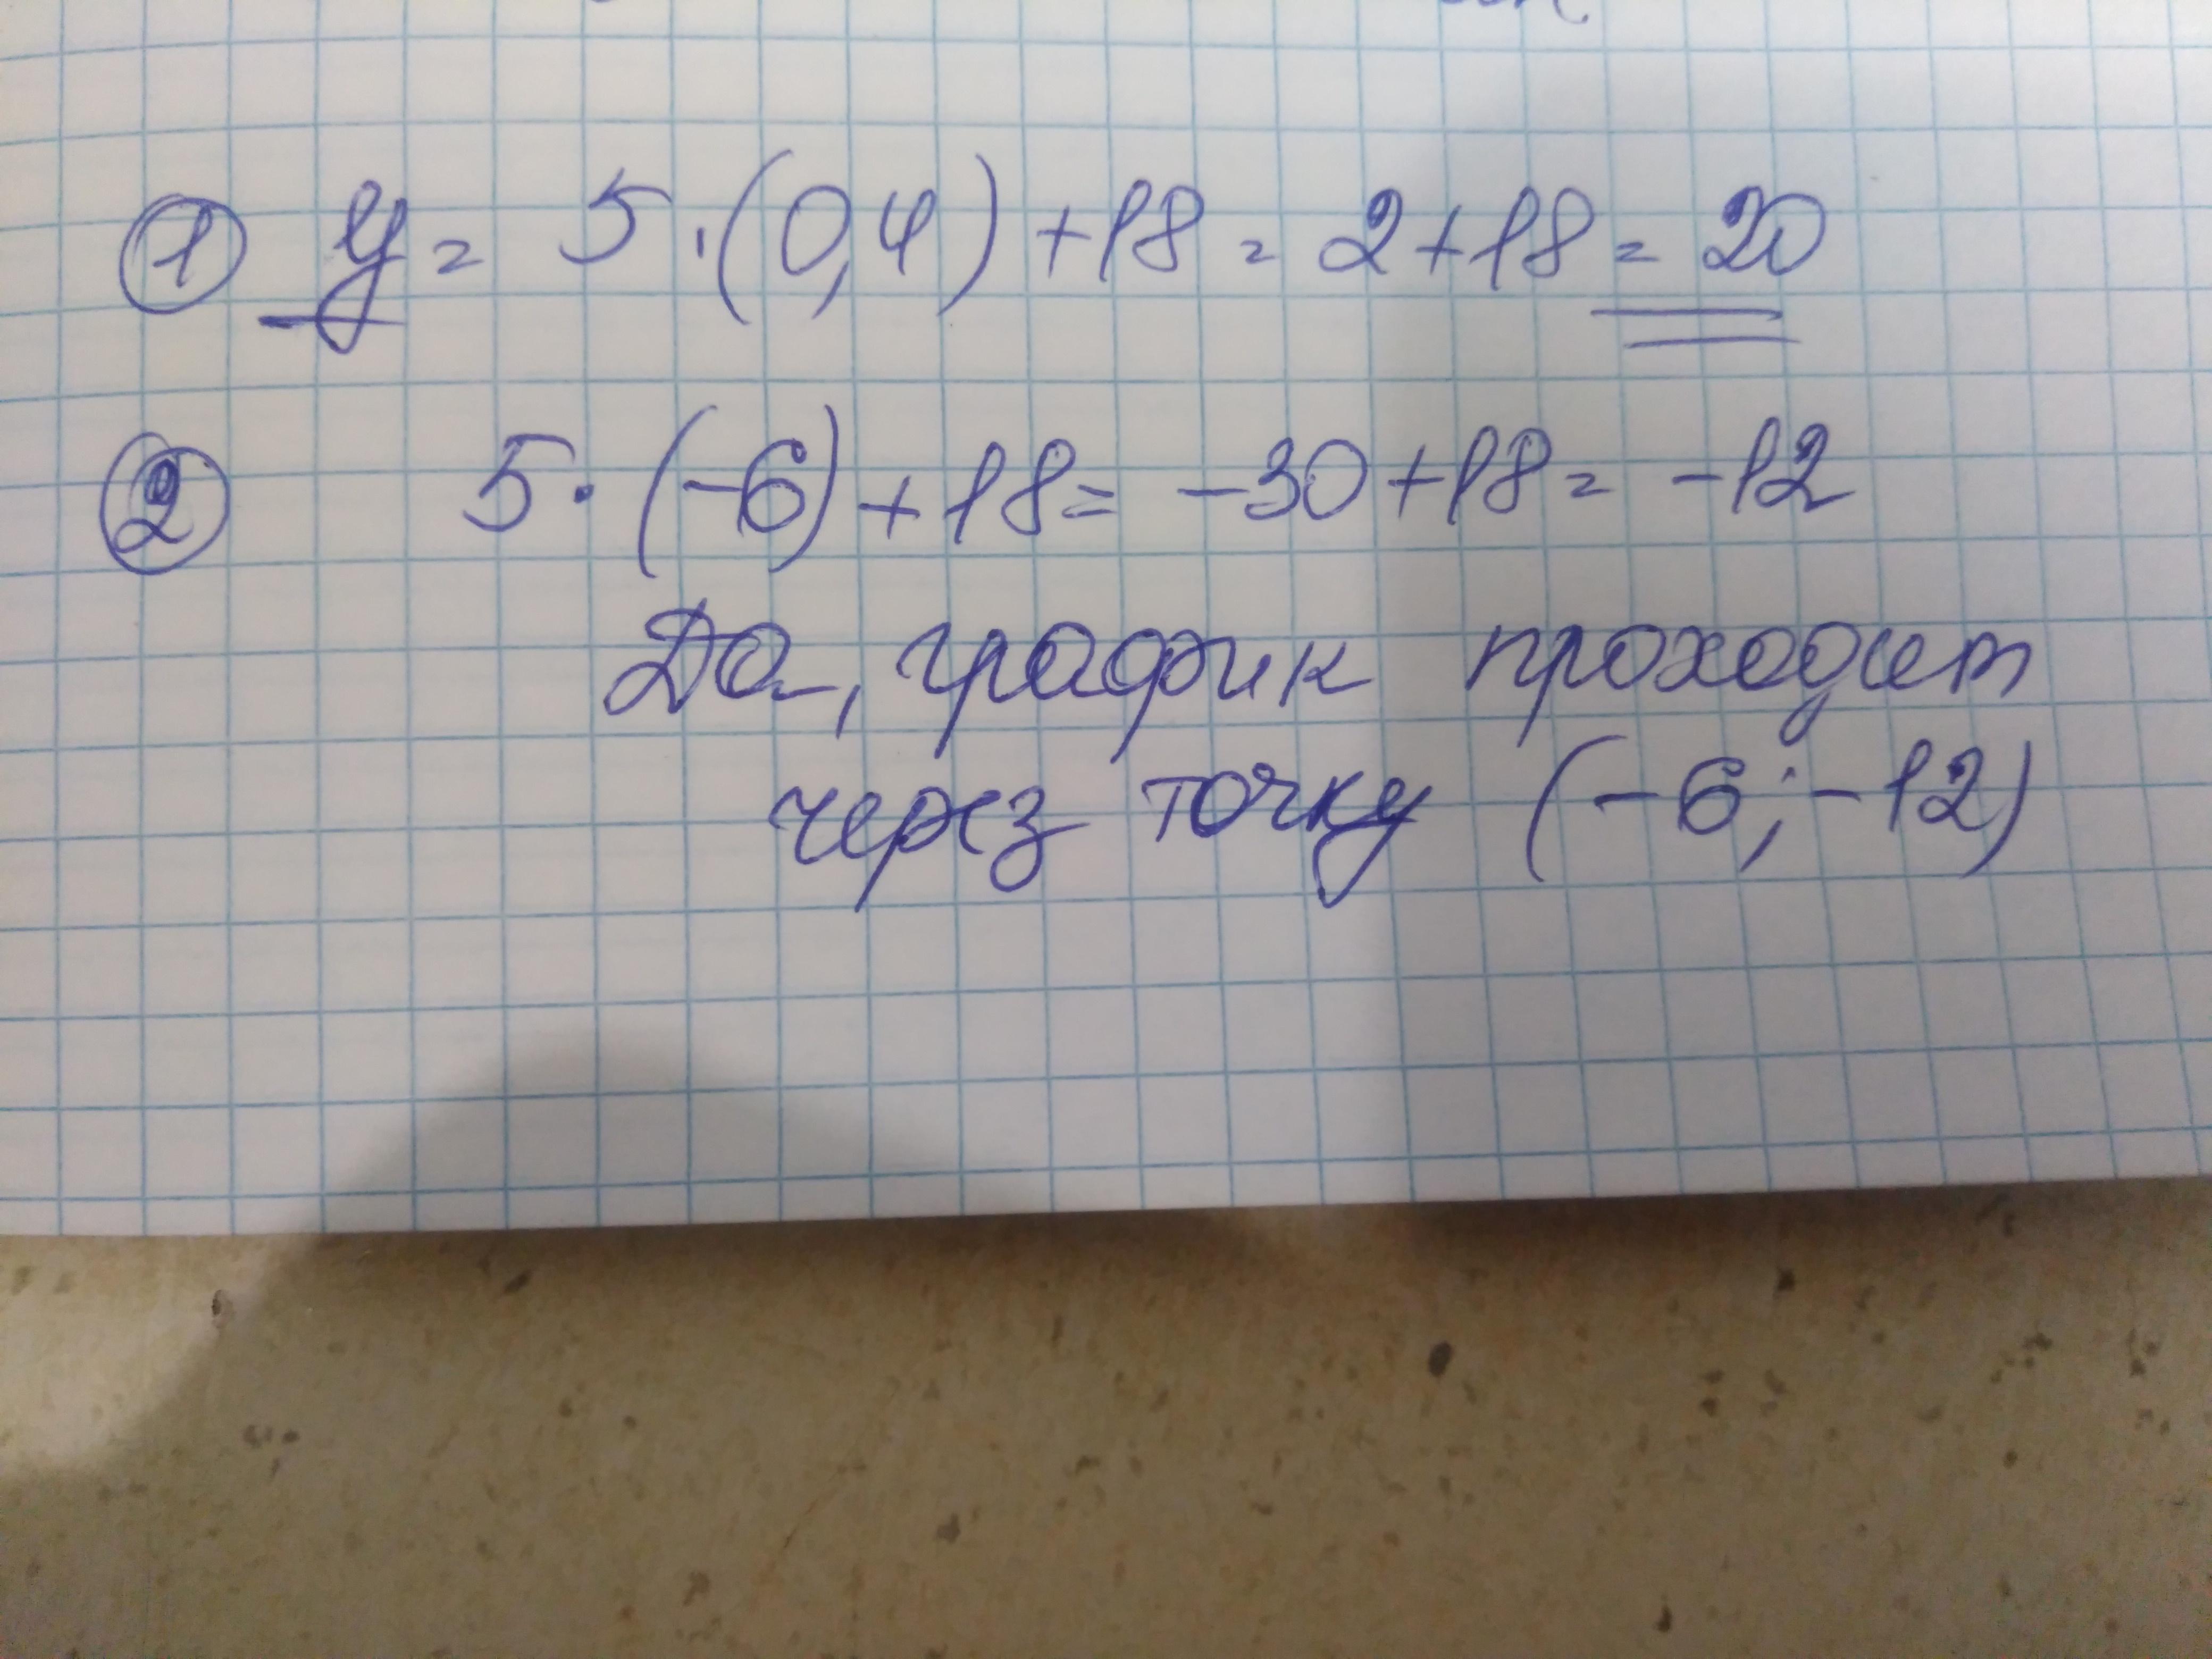 ① y = 5 · (0,4) + 18 = 2 + 18 = 20
② 5 · (-6) + 18 = -30 + 18 = -12
Да, график проходит
через точку (-6; -12)